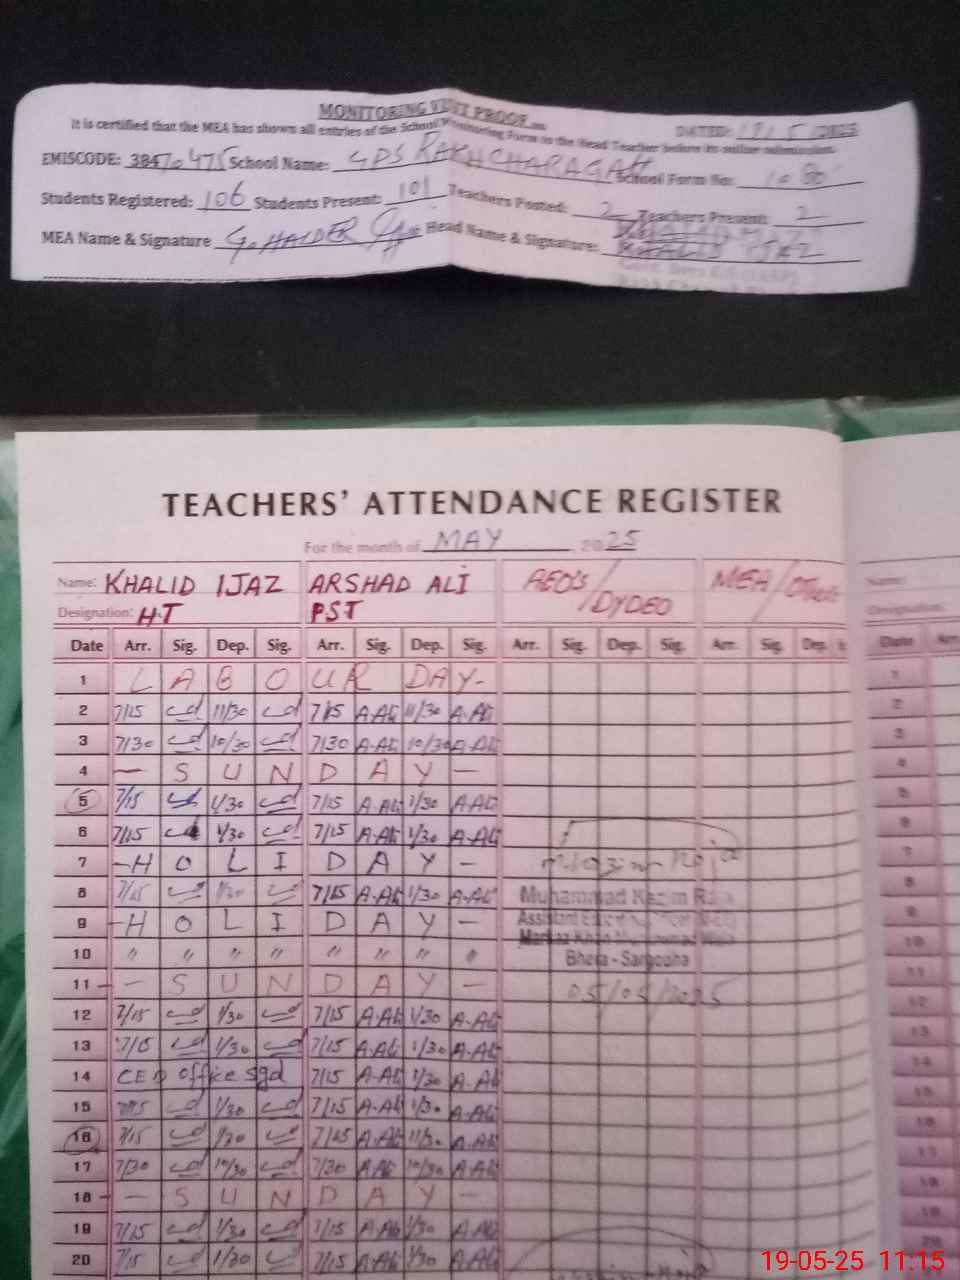 MONITORING VISIT PROOF
DATED: 19/5/2025
It is certified that the MEA has shown all entries of the School Monitoring Form to the Head Teacher before its online submission.
EMISCODE: 38470475 School Name: GPS RAKH CHARAGAH School Form No:
Students Registered: 106 Students Present: 101 Teachers Posted: 2 Teachers Present: 2
MEA Name & Signature G. HAIDER Head Name & Signature: KHALID IJAZ
TEACHERS' ATTENDANCE REGISTER
For the month of MAY 2025
Name: KHALID IJAZ ARSHAD ALI AEO'S/DYDEO MEA/Others Name:
Designation: HT PST Designation:
Date Arr. Sig. Dep. Sig. Arr. Sig. Dep. Sig. Arr. Sig. Dep. Sig. Arr. Sig. Dep. Date Arr
1 LABOUR DAY- 1
2 7/15 11/30 7/15 A-Ali 11/30 A-Ali 2
3 7/30 10/30 7/30 A-Ali 10/30 A-Ali 3
4 — SUNDAY — 4
5 7/15 1/30 7/15 A-Ali 1/30 A-Ali 5
6 7/15 1/30 7/15 A-Ali 1/30 A-Ali 6
7 — HOLIDAY — 7
8 7/15 1/30 7/15 A-Ali 1/30 A-Ali Muhammad Kazim Raza 8
9 — HOLIDAY — Assistant Education 9
10 " " " " " " " " Bhera - Sargodha 10
11 — SUNDAY — 05/05/2025 11
12 7/15 1/30 7/15 A-Ali 1/30 A-Ali 12
13 7/15 1/30 7/15 A-Ali 1/30 A-Ali 13
14 CEO office sgd 7/15 A-Ali 1/30 A-Ali 14
15 7/15 1/30 7/15 A-Ali 1/30 A-Ali 15
16 7/15 1/30 7/15 A-Ali 11/30 A-Ali 16
17 7/30 10/30 7/30 A-Ali 10/30 A-Ali 17
18 — SUNDAY — 18
19 7/15 1/30 7/15 A-Ali 1/30 A-Ali 19
20 7/15 1/30 7/15 A-Ali 1/30 A-Ali 20
19-05-25 11:15